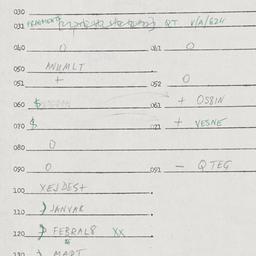 030
031 FRAGMENTS QT V/A/624
040 0 041 0
050 ANUMLT
051 + 052 0
060 $ 061 + OSBIN
070 $ 071 + VESNE
080 0
090 0 091 — QTEG
100 XEJDES+
110 ) JANVAR
120 ) FEBRAL8 XX
130 MART